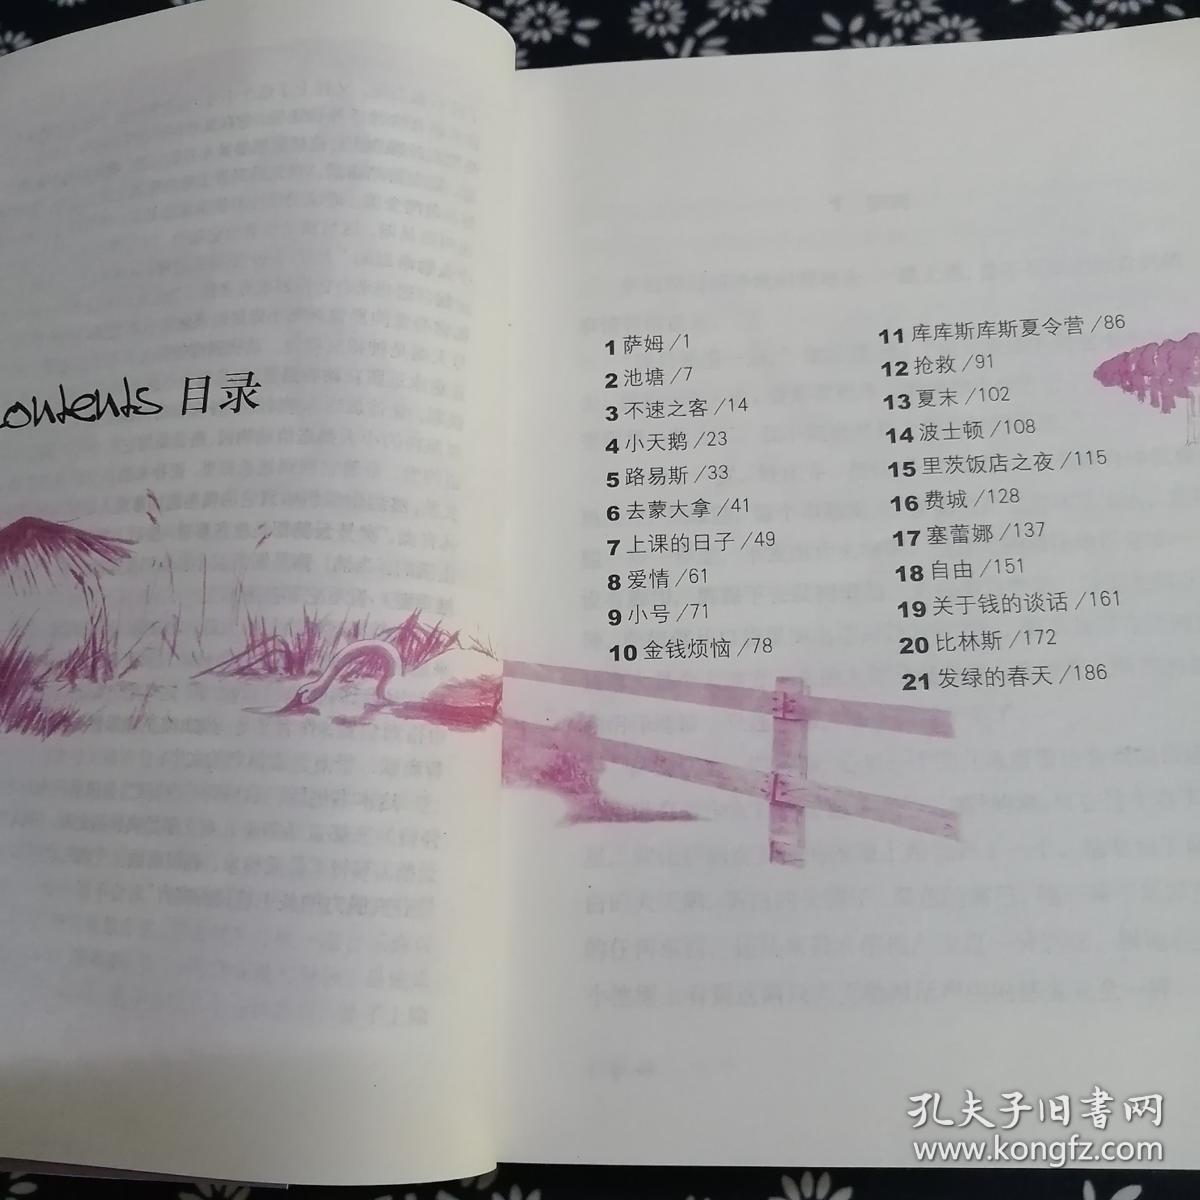 Contents 目录
1 萨姆 /1
2 池塘 /7
3 不速之客 /14
4 小天鹅 /23
5 路易斯 /33
6 去蒙大拿 /41
7 上课的日子 /49
8 爱情 /61
9 小号 /71
10 金钱烦恼 /78
11 库库斯库斯夏令营 /86
12 抢救 /91
13 夏末 /102
14 波士顿 /108
15 里茨饭店之夜 /115
16 费城 /128
17 塞蕾娜 /137
18 自由 /151
19 关于钱的谈话 /161
20 比林斯 /172
21 发绿的春天 /186
孔夫子旧书网
www.kongfz.com